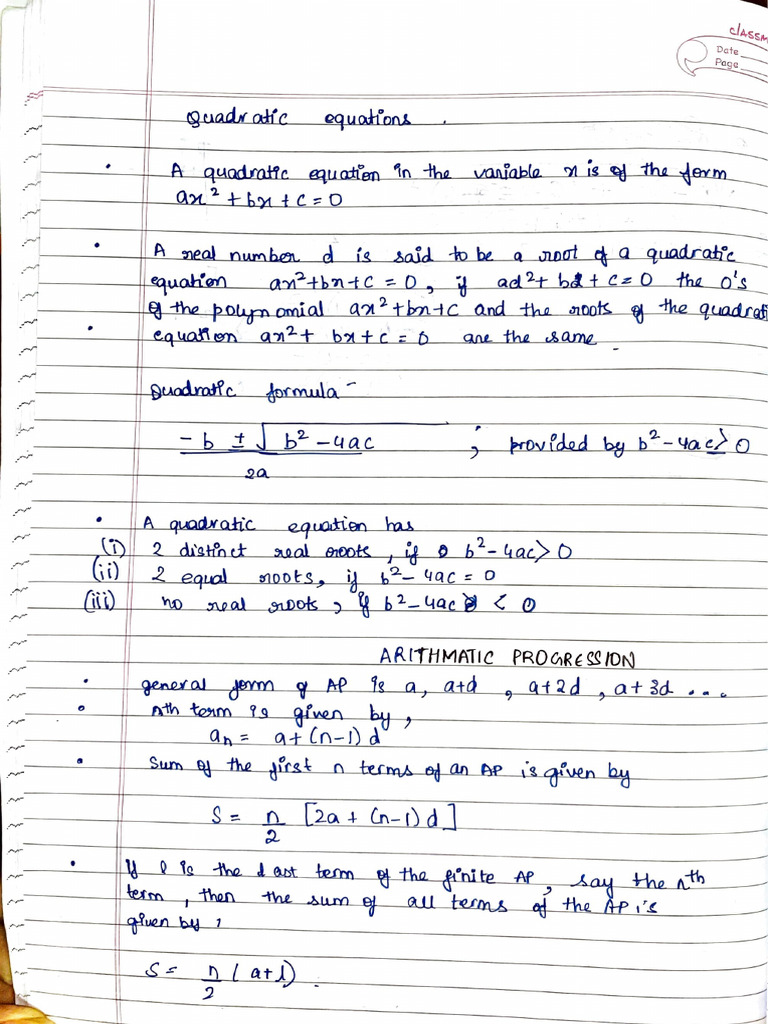 classm
Date
Page
Quadratic equations .
• A quadratic equation in the variable x is of the form
ax² + bx + c = 0
• A real number d is said to be a root of a quadratic
equation ax²+bx+c = 0, if ad²+ bd + c = 0 the 0's
of the polynomial ax²+bx+c and the roots of the quadrati
• equation ax²+ bx + c = 0 are the same
Quadratic formula -
-b ± √b² - 4ac ; provided by b² - 4ac ≥ 0
2a
• A quadratic equation has
(i) 2 distinct real roots, if b² - 4ac > 0
(ii) 2 equal roots, if b² - 4ac = 0
(iii) no real roots, if b² - 4ac < 0
ARITHMATIC PROGRESSION
• general form of AP is a, a+d , a+2d , a+3d ...
• nth term is given by,
an = a + (n-1) d
• Sum of the first n terms of an AP is given by
S = n/2 [2a + (n-1) d]
• If l is the last term of the finite AP, say the nth
term, then the sum of all terms of the AP is
given by :
S = n/2 (a+l).